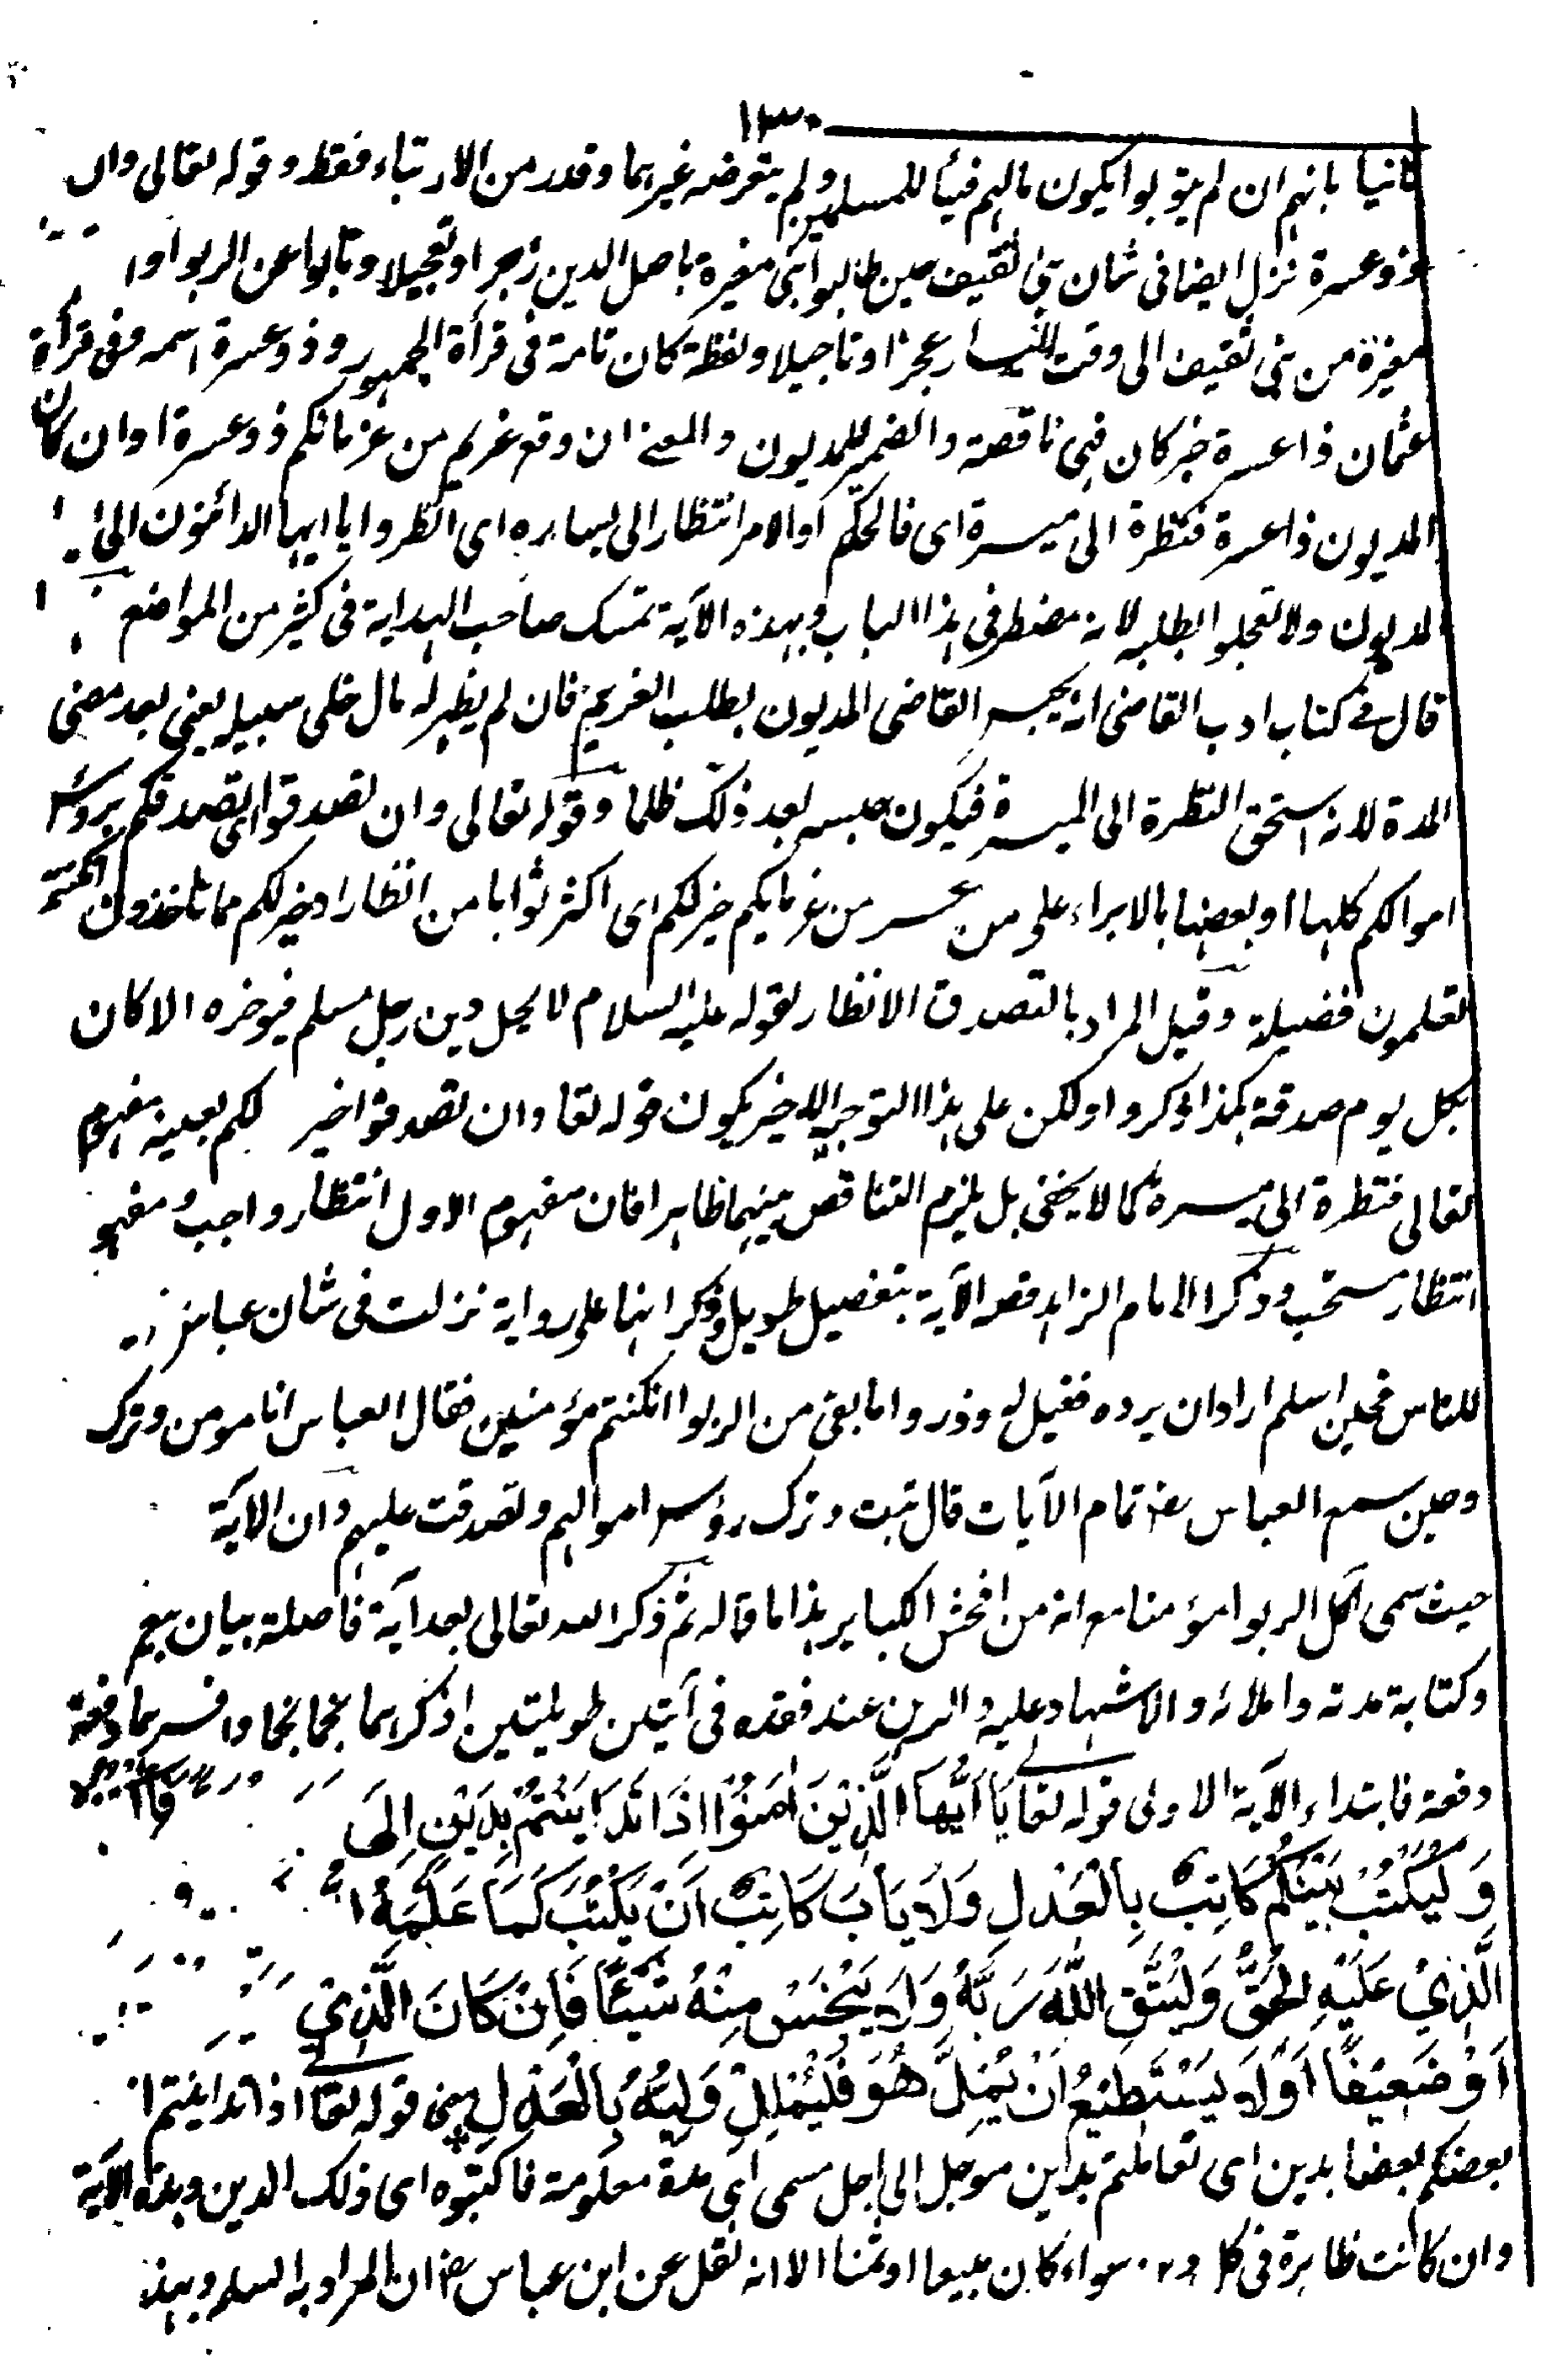 ١٣٠
ثانيا بانهم ان لم يتوبوا يكون مالهم فيأ للمسلمين ولم يتعرض غيرهما وقدر من الارتباء فقط وقوله تعالى وان
ذو عسرة نزل ايضا فى شان بنى ثقيف حين طالبوا بنى مغيرة باصل الدين زجرا وتعجيلا وتابوا عن الربوا
مغيرة من بنى ثقيف الى وقت اليسار عجزا وتاجيلا ولفظة كان تامة فى قرأة الجمهور وذو عسرة اسمه وفى قرأة
عثمان ذا عسرة خبر كان فهى ناقصة والضمير للمديون والمعنے ان وقع غريم من غرمائكم ذو عسرة او ان كان
المديون ذا عسرة فنظرة الى ميسرة اى فالحكم او الامر انتظار الى يساره اى انظروا يا ايها الدائنون الى
المديون ولا تعجلوا بطلبه لانه مضطر فى هذا الباب وبهذه الآية تمسك صاحب الهداية فى كثير من المواضع
قال فے كتاب ادب القاضى انه يحبس القاضى المديون بطلب الغريم فان لم يظهر له مال خلى سبيله يعنى بعد مضى
المدة لانه استحق النظرة الى الميسرة فيكون حبسه بعد ذلك ظلما وقوله تعالى وان تصدقوا اى تصدقكم برؤس
اموالكم كلها او بعضها بالابراء على من عسر من غرمايكم خير لكم اى اكثر ثوابا من انظار او خير لكم مما تاخذون ان كنتم
تعلمون فضيلة وقيل المراد بالتصدق الانظار لقوله عليه السلام لا يحل دين رجل مسلم فيوخره الا كان
بكل يوم صدقة هكذا ذكروا ولكن على هذا التوجيه الاخير يكون قوله تعا وان تصدقوا خير لكم بعينه مفهوم
تعالى فنظرة الى ميسرة كما لا يخفى بل يلزم التناقص بينهما ظاهرا فان مفهوم الاول انتظار واجب ومفهو
انتظار مستحب وذكر الامام الزاهد قصه الآية بتفصيل طويل وذكر انها على رواية نزلت فى شان عباس
للناس فحين اسلم اراد ان يرده فقيل له وذروا ما بقى من الربوا ان كنتم مؤمنين فقال العباس انا مومن وترك
وحين سمع العباس رض تمام الآيات قال تبت وترك رؤس اموالهم وتصدقت عليهم وان الآية
حيث سمى آكل الربوا مؤمنا مع انه من افحش الكباير هذا ما قاله ثم ذكر الله تعالى بعد آية فاصلة بيان بيع
وكتابة مدته واملائه والاشهاد عليه والرهن عند فقده فى آيتين طويلتين اذكرهما نجما نجما وافسرهما دفعة
دفعة فابتداء الآية الاولى قوله تعا يَا أَيُّهَا الَّذِيْنَ اٰمَنُوْا اِذَا تَدَايَنْتُمْ بِدَيْنٍ اِلَى
وَلْيَكْتُبْ بَيْنَكُمْ كَاتِبٌ بِالْعَدْلِ وَلَا يَأْبَ كَاتِبٌ اَنْ يَكْتُبَ كَمَا عَلَّمَهُ
الَّذِيْ عَلَيْهِ الْحَقُّ وَلْيَتَّقِ اللّٰهَ رَبَّهُ وَلَا يَبْخَسْ مِنْهُ شَيْئًا فَاِنْ كَانَ الَّذِيْ
اَوْ ضَعِيْفًا اَوْ لَا يَسْتَطِيْعُ اَنْ يُمِلَّ هُوَ فَلْيُمْلِلْ وَلِيُّهُ بِالْعَدْلِ يعنى قوله تعا اذا تداينتم
بعضكم بعضا بدين اى تعاملتم بداين موجل الى اجل مسمى اى مدة معلومة فاكتبوه اى ذلك الدين وهذه الآية
وان كانت ظاهرة فى كل سواء كان مبيعا او ثمنا الا انه نقل عن ابن عباس رض ان المراد به السلم وبهذ